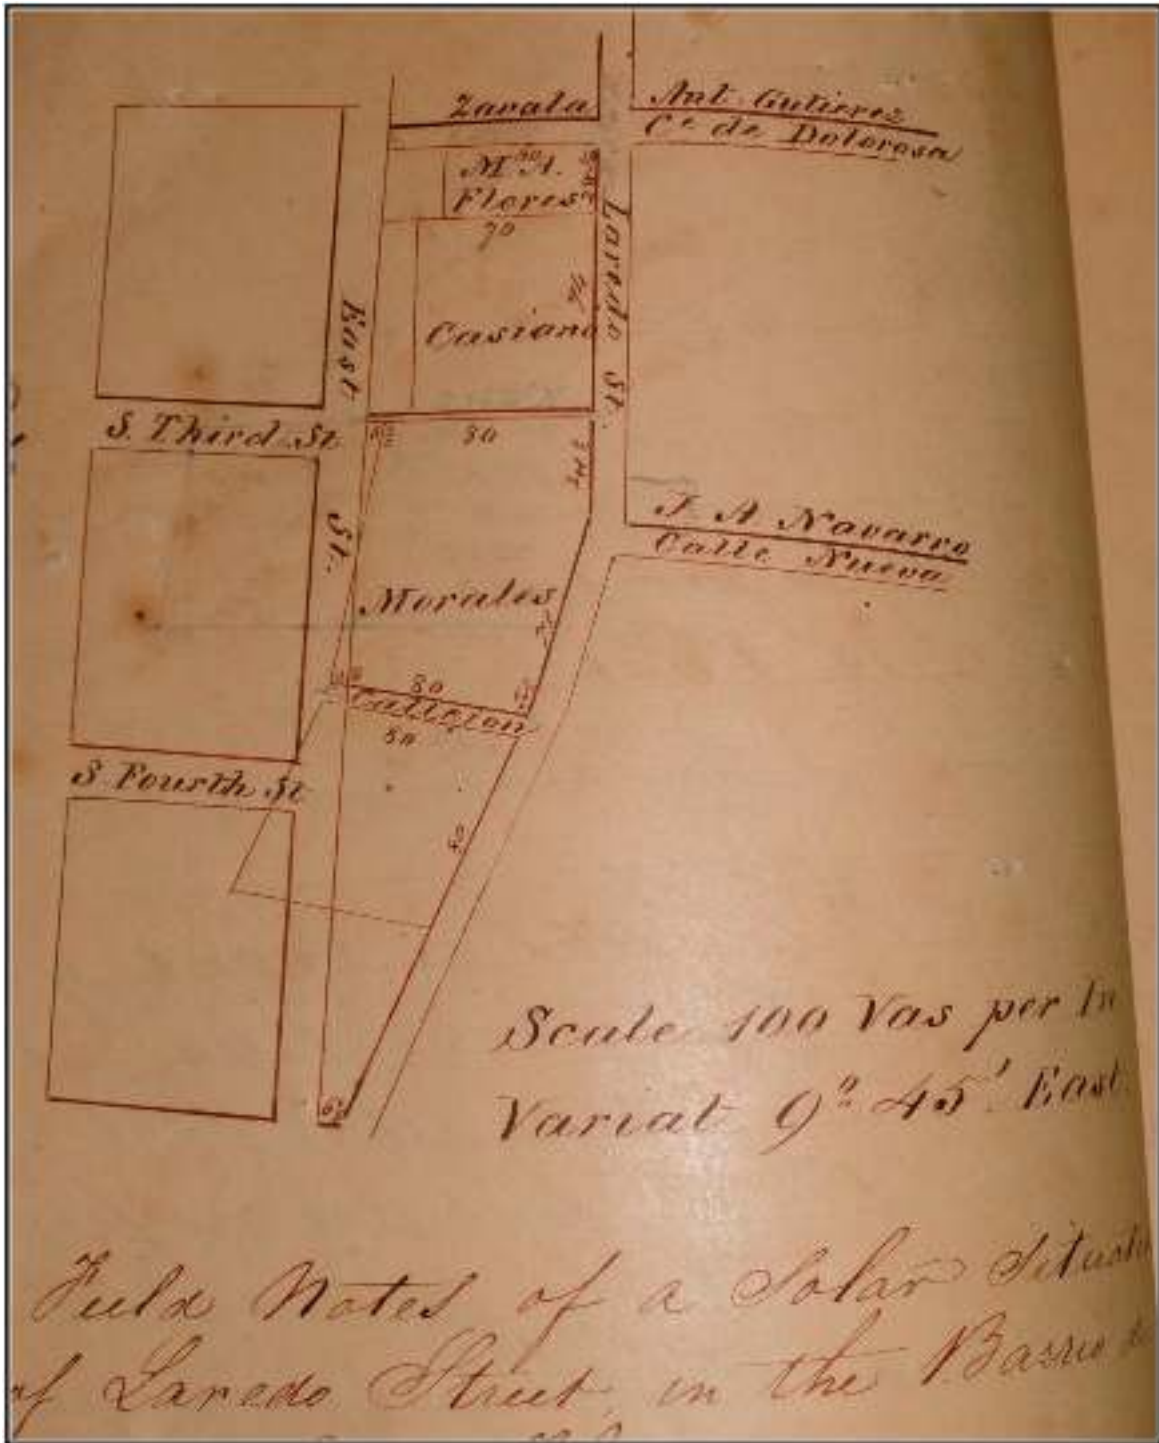 Zavala
Ant. Gutierez
Ce. de Dolorosa
50
M A.
Flores
70
Laredo St.
Casiano
East St.
S. Third St
80
J. A Navarro
Calle Nueva
Morales
80
Callejon
50
S. Fourth St
Scale 100 Vas per In
Variat 9º 45' East
Field Notes of a Solar Situate
of Laredo Street, in the Barrio